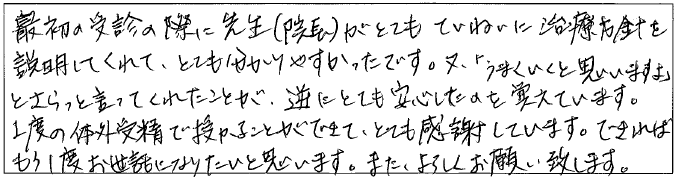 最初の受診の際に先生(院長)がとてもていねいに治療方針を
説明してくれて、とても分かりやすかったです。又、「うまくいくと思いますよ」
とさらっと言ってくれたことが、逆にとても安心したのを覚えています。
1度の体外受精で授かることができて、とても感謝しています。できれば
もう1度お世話になりたいと思います。また、よろしくお願い致します。